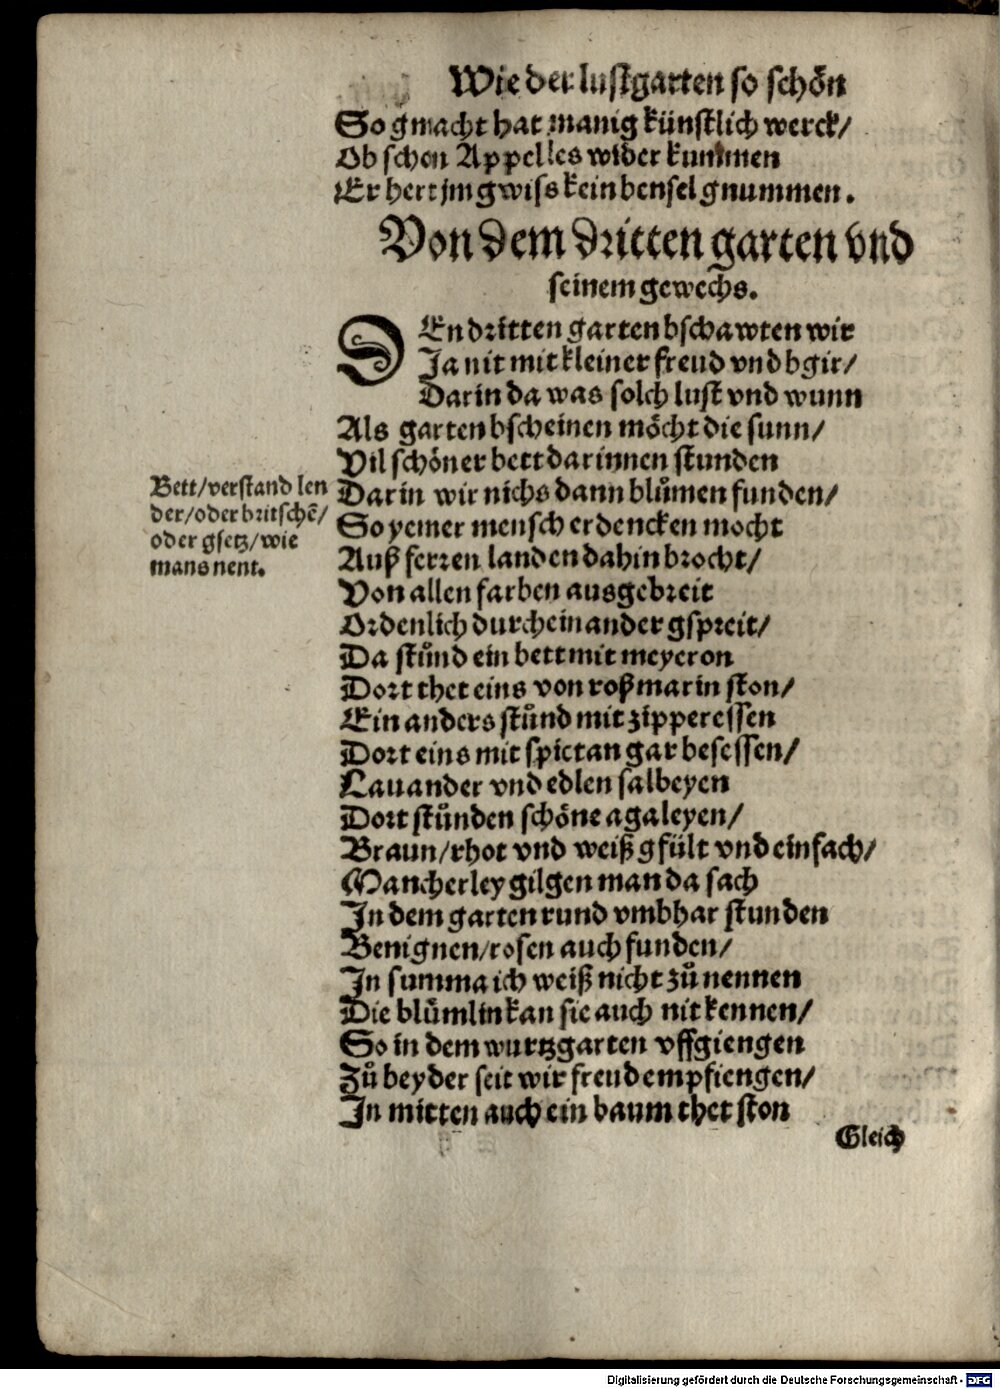 Wie der lustgarten so schön
So gmacht hat manig künstlich werck/
Ob schon Appelles wider kummen
Er hett jm gwiss kein bensel gnummen.
Von dem dritten garten vnd
seinem gewechs.
DEn dritten garten bschawten wir
Ja nit mit kleiner freud vnd bgir/
Darin da was solch lust vnd wunn
Als garten bscheinen möcht die sunn/
Vil schöner bett darinnen stunden
Bett/verstand len
der/oder britschē/
oder gsetz/wie
mans nent.
Darin wir nichs dann blůmen funden/
So yemer mensch erdencken mocht
Auß ferren landen dahin brocht/
Von allen farben ausgebreit
Ordenlich durcheinander gspreit/
Da stůnd ein bett mit meyeron
Dort thet eins von roßmarin ston/
Ein anders stůnd mit zipperessen
Dort eins mit spictan gar besessen/
Lauander vnd edlen salbeyen
Dort stůnden schöne agaleyen/
Braun/rhot vnd weiß gfült vnd einfach/
Mancherley gilgen man da sach
In dem garten rund vmbhar stunden
Benignen/rosen auch funden/
In summa ich weiß nicht zů nennen
Die blůmlin kan sie auch nit kennen/
So in dem wurtzgarten vffgiengen
Zů beyder seit wir freud empfiengen/
In mitten auch ein baum thet ston
Gleich
Digitalisierung gefördert durch die Deutsche Forschungsgemeinschaft - DFG